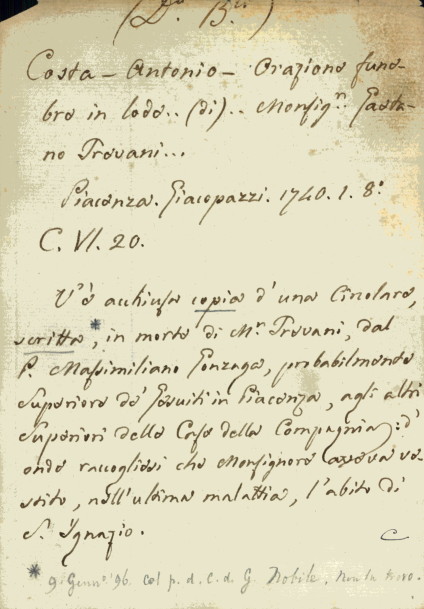 (Dº. Bⁿⁱ)
Costa - Antonio - Orazione fune-
bre in lode.. (di).. Monsigʳ. Gaeta-
no Trevani...
Piacenza. Giacopazzi. 1740. 1. 8º
C. VI. 20.
V'è acchiusa copia d'una Circolare,
scritta*, in morte di Mʳ. Trevani, dal
P. Massimiliano Gonzaga, probabilmente
Superiore de' Gesuiti in Piacenza, agli altri
Superiori delle Case della Compagnia: d'
onde raccogliesi che Monsignore aveva ve-
stito, nell'ultima malattia, l'abito di
S. Ignazio.
C
* 9 Genn. 96. Col p. d. C. d. G. Nobile. Non la trovo.